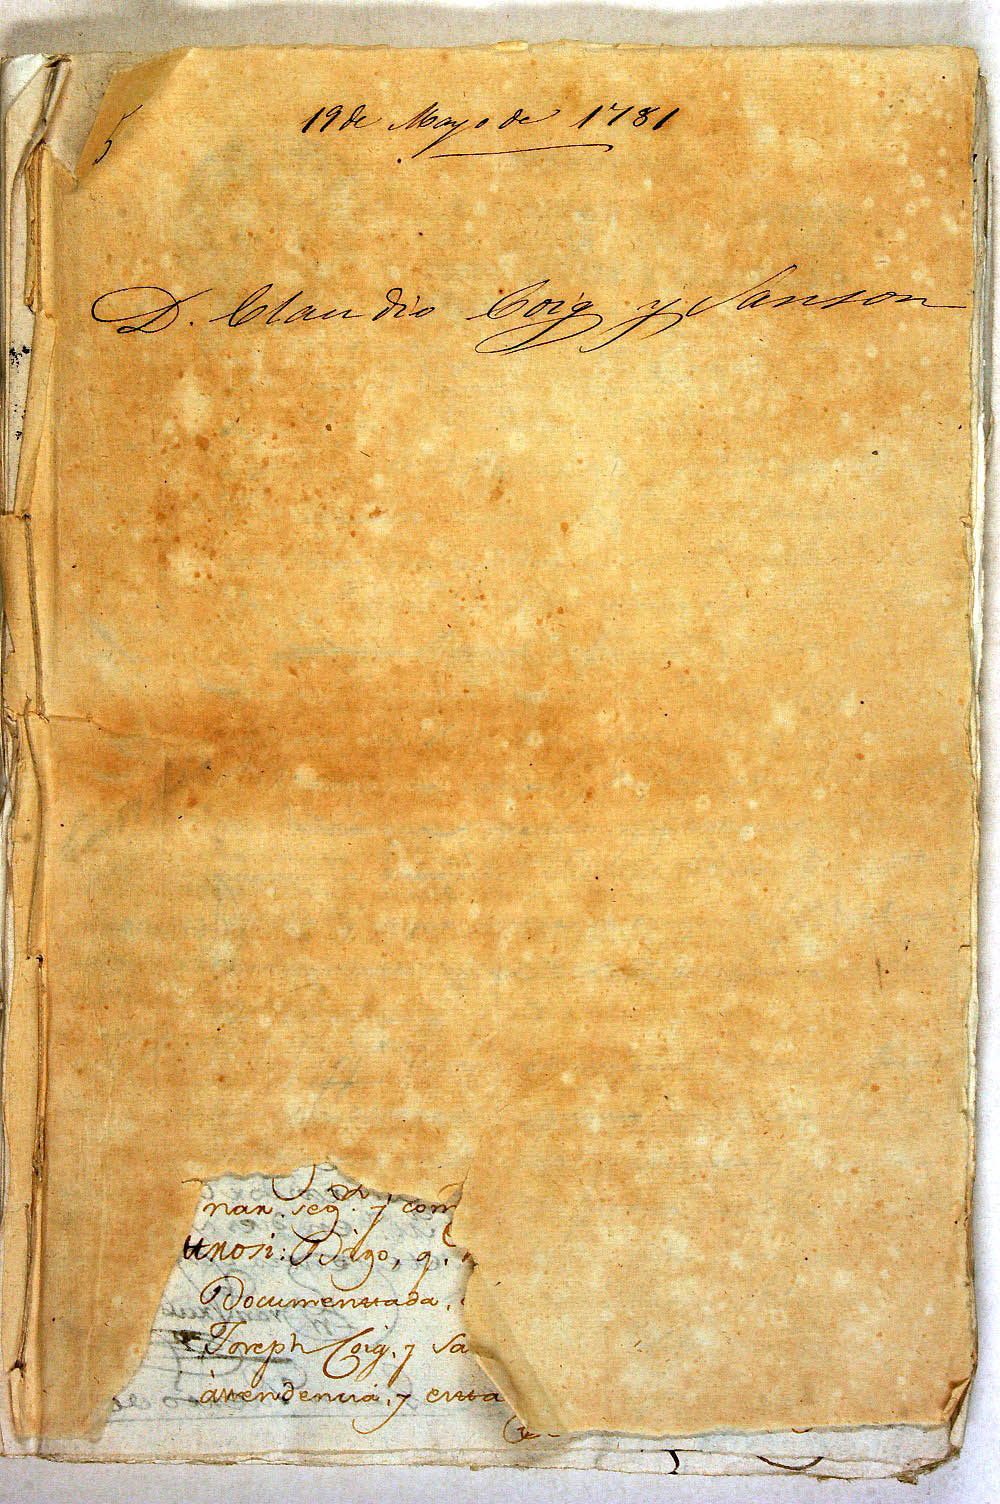 19 de Mayo de 1781
D. Claudio Coig y Sanson
nan. seg. y com
unosi: Digo, q.
Documenttada,
Joseph Coig, y Sa
áttendencia, y entta